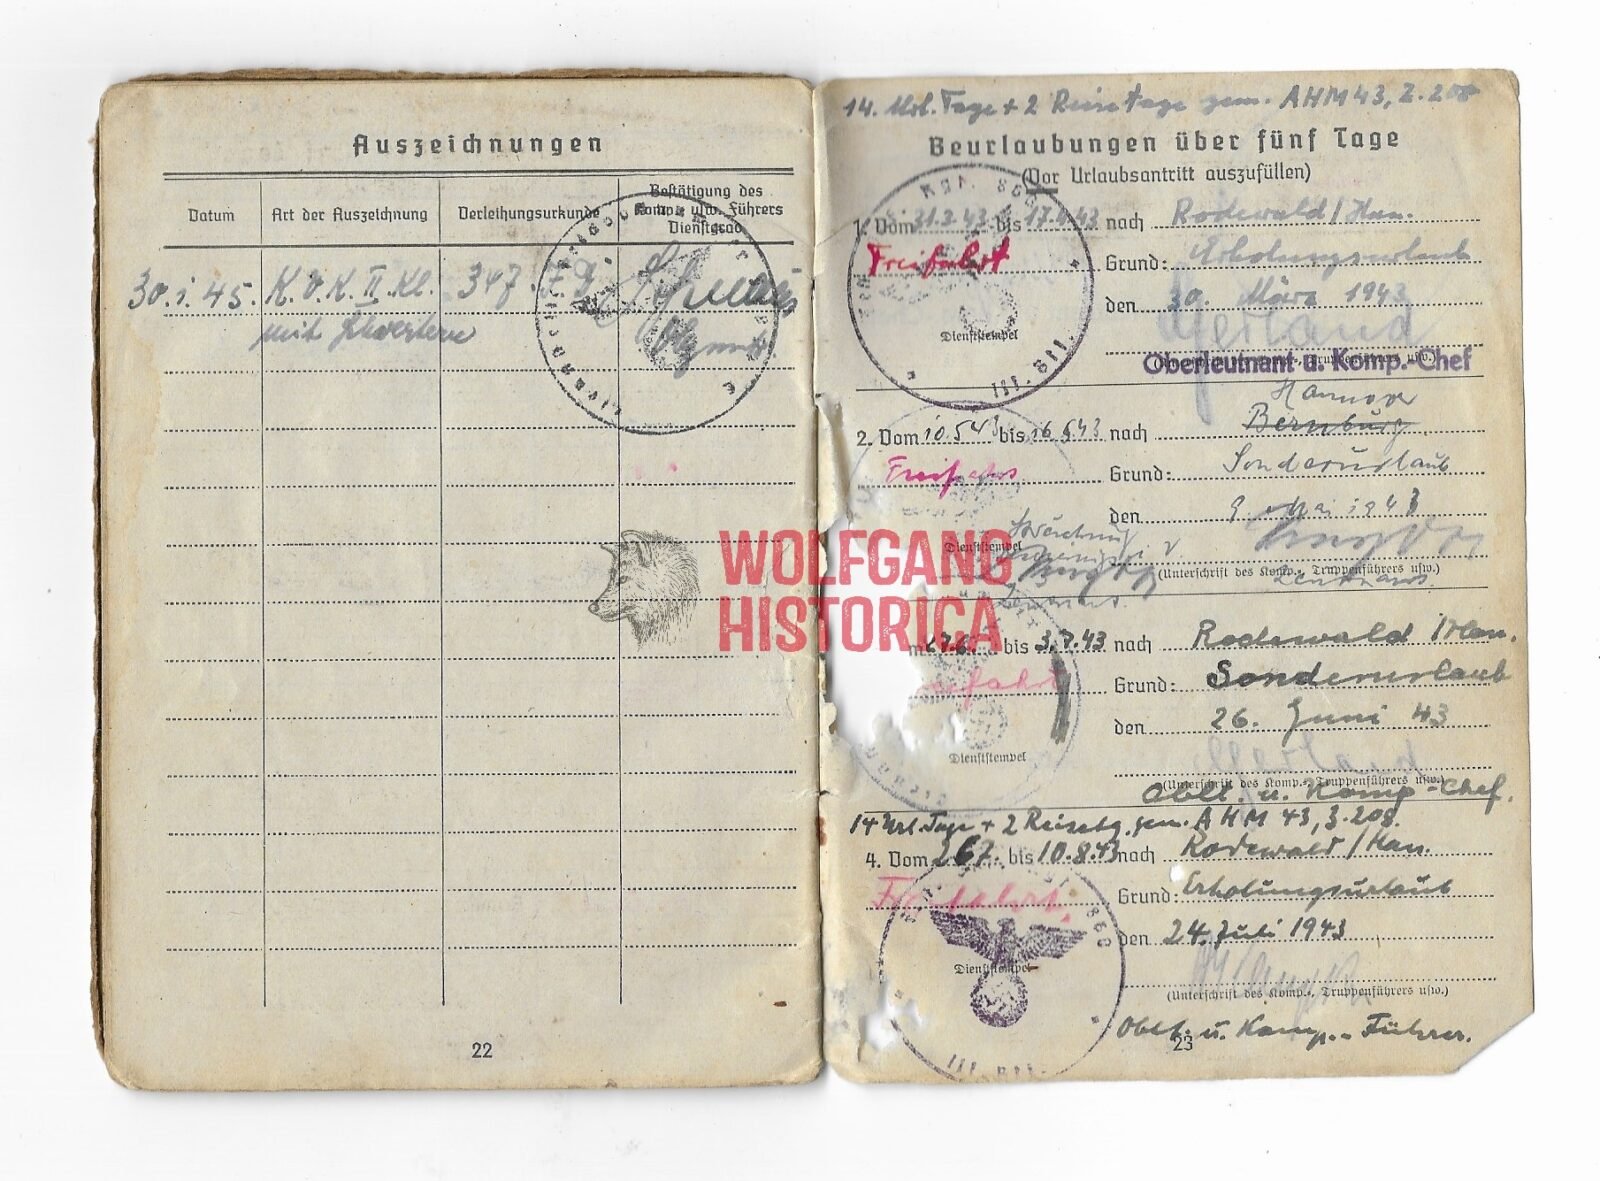 Auszeichnungen
Datum
Art der Auszeichnung
Verleihungsurkunde
Bestätigung des
Komp. usw. Führers
Dienstgrad
30.1.45. K.V.K. II. Kl. 347. J.D.
mit Schwertern
22
14. Url. Tage + 2 Reisetage gem. AHM 43, Z. 208
Beurlaubungen über fünf Tage
(Vor Urlaubsantritt auszufüllen)
1. Vom 31.3.43 bis 17.4.43 nach Rodewald/Han.
Freifahrt
Grund: Erholungsurlaub
den 30. März 1943
Dienststempel
Oberleutnant u. Komp.-Chef
Hannover
2. Vom 10.5.43 bis 16.5.43 nach Bernburg
Grund: Sonderurlaub
den 9. Mai 1943
Dienststempel
(Unterschrift des Komp., Truppenführers usw.)
Leutnant
WOLFGANG
HISTORICA
bis 3.7.43 nach Rodewald/Han.
Grund: Sonderurlaub
den 26. Juni 43
Dienststempel
(Unterschrift des Komp., Truppenführers usw.)
Oblt. u. Komp.-Chef.
14 Url. Tage + 2 Reisetg. gem. AHM 43, Z. 208.
4. Vom 26.7. bis 10.8.43 nach Rodewald/Han.
Freifahrt.
Grund: Erholungsurlaub
den 24. Juli 1943
Dienststempel
(Unterschrift des Komp., Truppenführers usw.)
Oblt. u. Komp.-Führer.
23